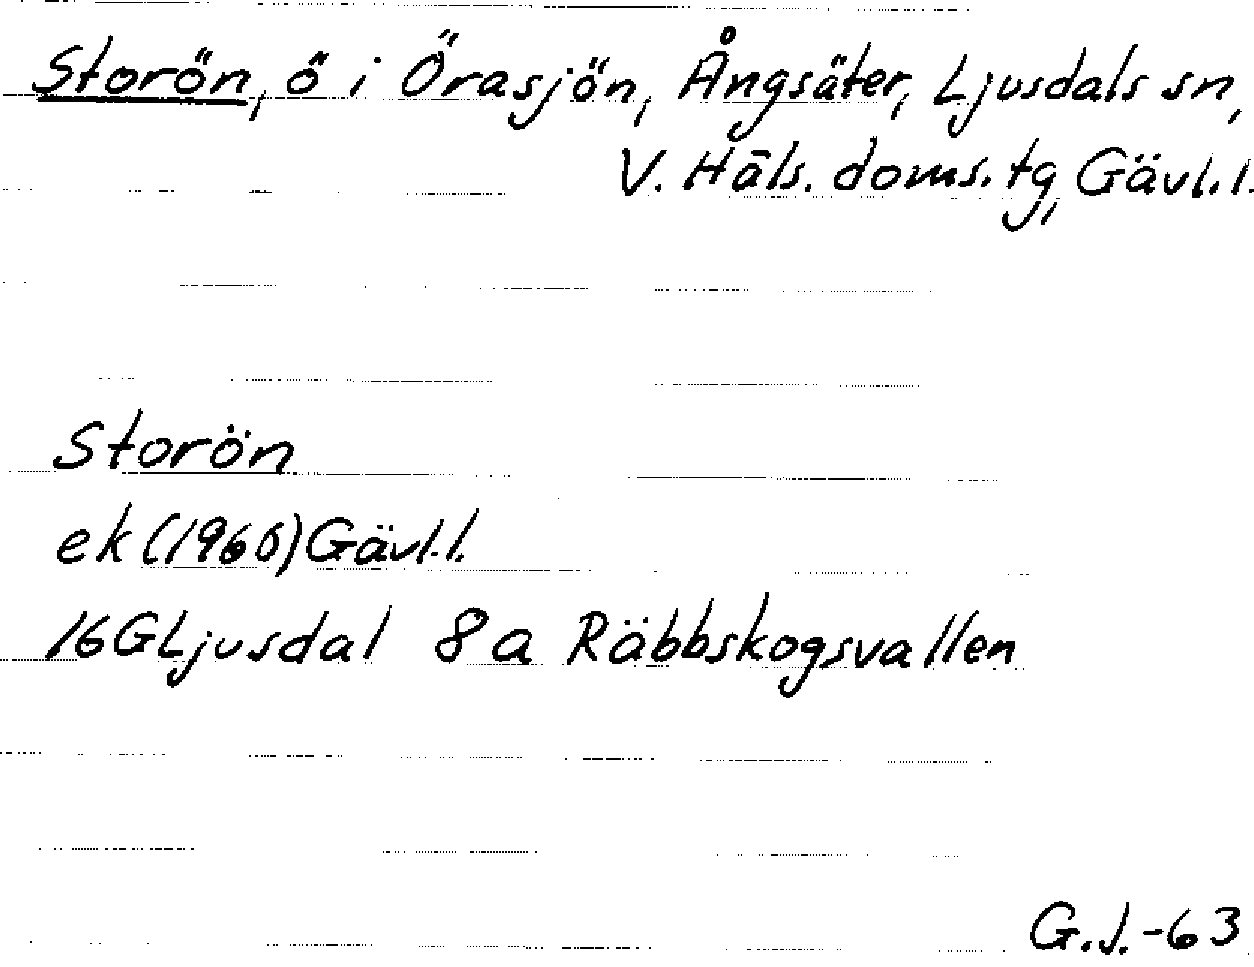 Storön, ö i Örasjön, Ångsäter, Ljusdals sn,
V. Häls. doms. tg, Gävl. l.
Storön
ek (1960) Gävl. l.
16G Ljusdal 8a Räbbskogsvallen
G. J. -63